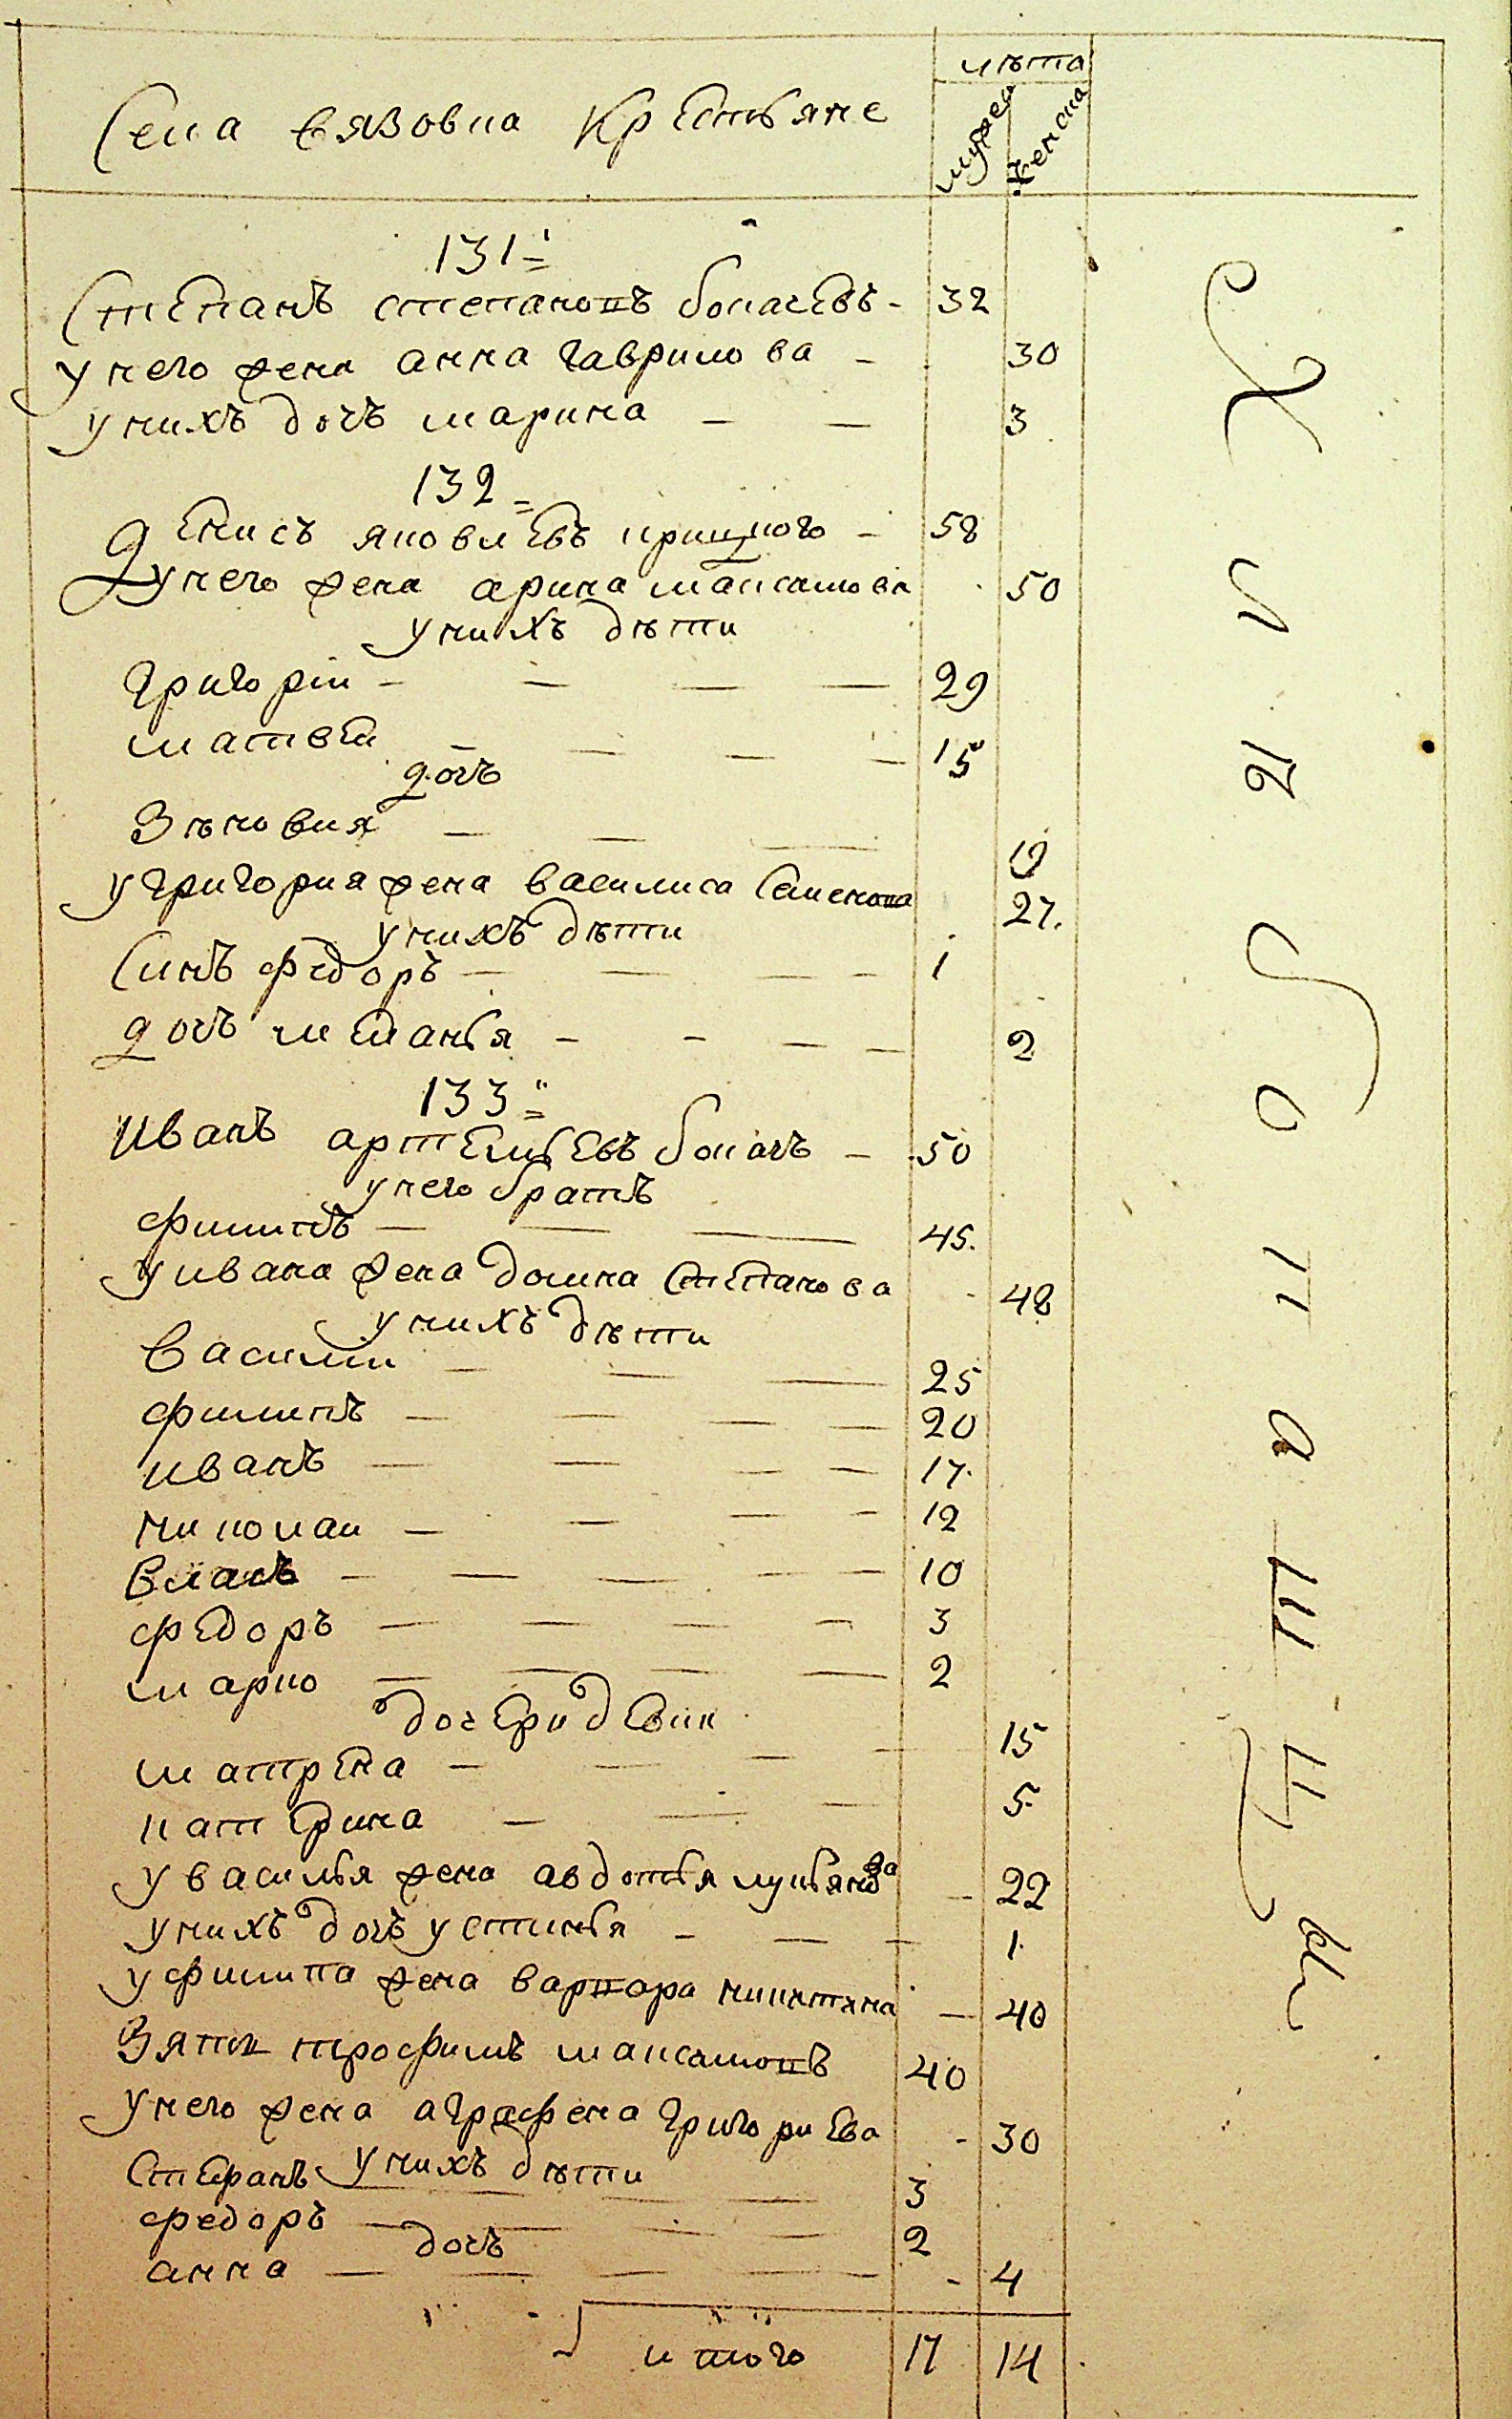 лѣта
Села вязовка крестьяне
мужеска
женска
131:
Степанъ степановъ богачевъ - 32
у него жена анна гаврилова - 30
у нихъ дочь марина - - 3
132
Денисъ яковлевъ - 58
у него жена арина максимова 50
у нихъ дѣти
григоріи - - - - 29
матвеи - - - - 15
дочь
Зѣновия - - - 19
у григория жена василиса Семенова 27.
у нихъ дѣти
Синъ федоръ - - - - 1
дочь меланья - - - - 2
133
Иванъ артемьевъ - 50
у него братъ
филипъ - - - 45.
у ивана жена домна Степанова 48
у нихъ дѣти
Василіи - - - 25
филипъ - - - - 20
иванъ - - - - 17.
николаи - - - - 12
власъ - - - - 10
федоръ - - - - 3
марко - - - - 2
дочери девки
матрена - - - - 15
катерина - - - 5
у василья жена авдотья лукьянова - 22
у нихъ дочь устинья - - - 1.
у филипа жена варвара никитина - 40
Зять трофимъ максимовъ 40
у него жена аграфена григориева - 30
у нихъ дѣти
Стефанъ - - - 3
федоръ - - - - 2
дочь
анна - - - - - 4
итого 17 14